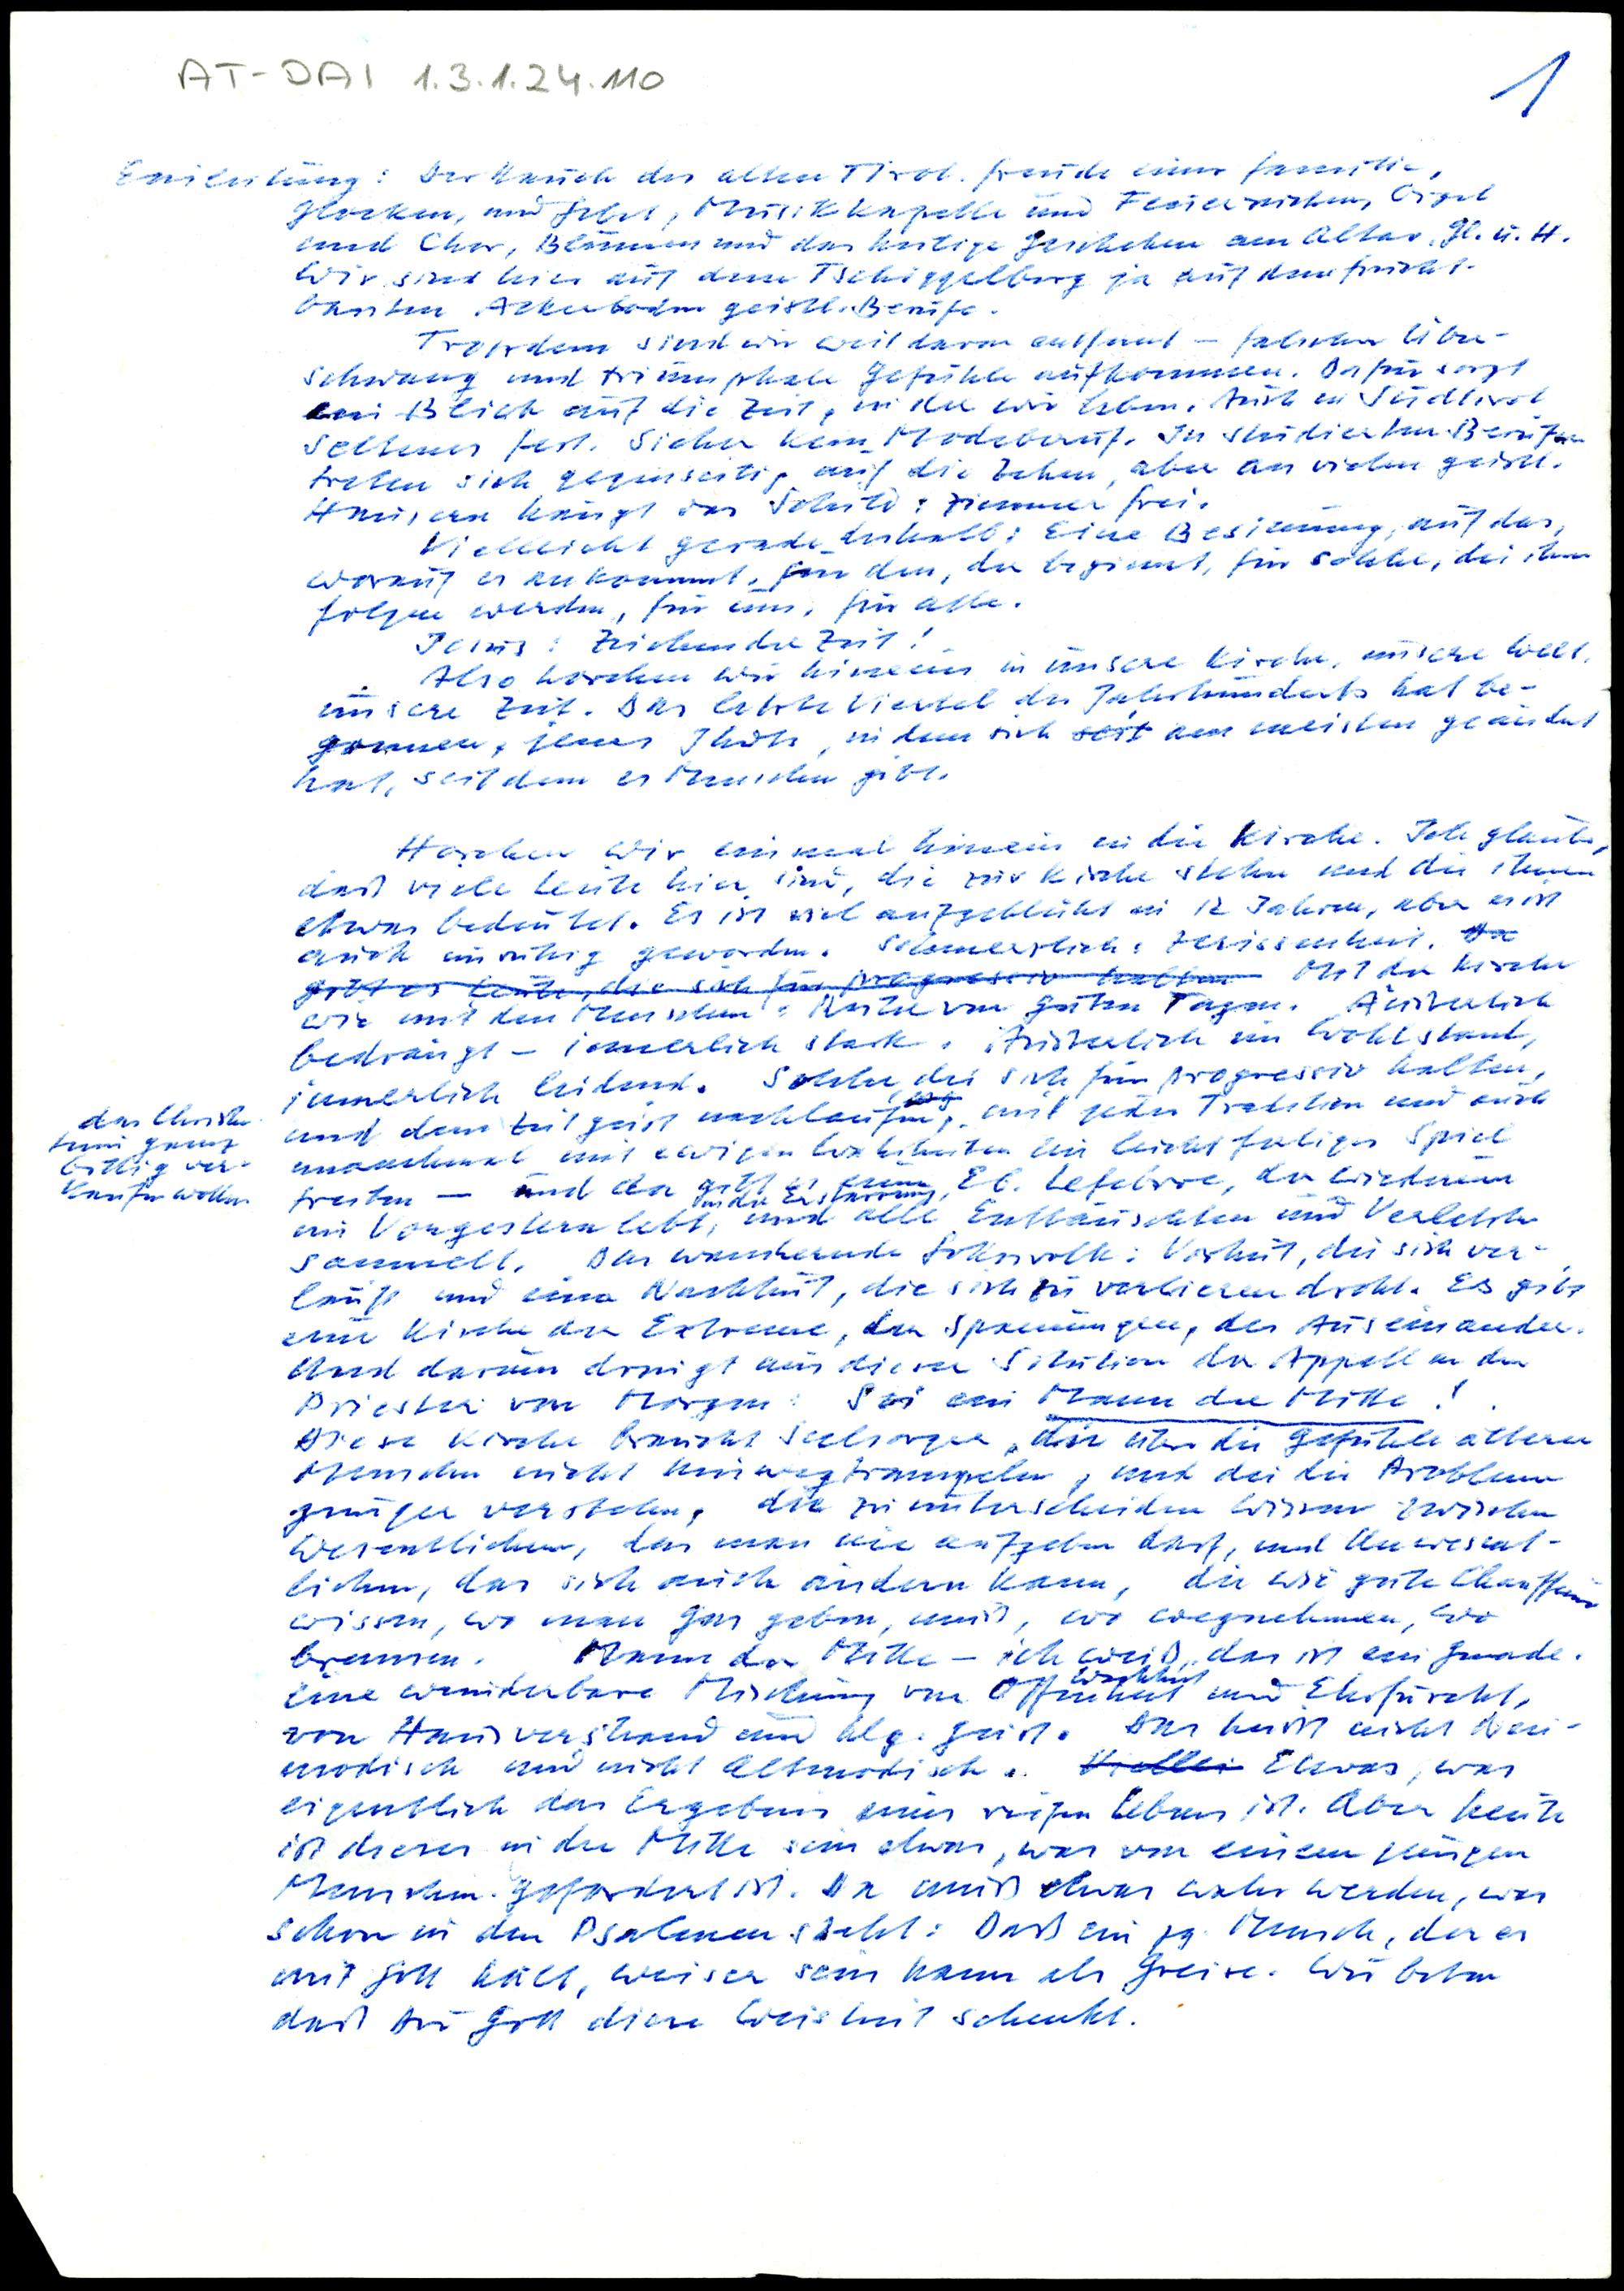 AT-DAI 1.3.1.24.110
1
Einleitung: Der Hauch des alten Tirol. Freude einer Familie,
Glocken, und Gebet, Musikkapelle und Feuerwehren, Orgel
und Chor, Blumen und das heilige Geschehen am Altar. Gl. u. H.
Wir sind hier auf dem Tschögglberg ja auf dem frucht-
barsten Ackerboden geistl. Berufe.
Trotzdem sind wir weit davon entfernt – falscher Über-
schwang und triumphale Gefühle aufkommen. Dafür sorgt
ein Blick auf die Zeit, in der wir leben. Auch in Südtirol
seltenes Fest. Sicher kein Modeberuf. In studierten Berufen
treten sich gegenseitig auf die Zehen, aber an vielen geistl.
Häusern hängt das Schild: Zimmer frei.
Vielleicht gerade deshalb: Eine Besinnung, auf das,
worauf es ankommt, für den, der beginnt, für solche, die ihm
folgen werden, für uns, für alle.
Jesus: Zeichen der Zeit!
Also horchen wir hinein in unsere Kirche, unsere Welt,
unsere Zeit. Das letzte Viertel des Jahrhunderts hat be-
gonnen, jenes Jhdts, in dem sich seit am meisten geändert
hat, seitdem es Menschen gibt.
Horchen wir einmal hinein in die Kirche. Ich glaube,
daß viele Leute hier sind, die zur Kirche stehen und die ihnen
etwas bedeutet. Es ist viel aufgeblüht in 12 Jahren, aber es ist
auch unruhig geworden. Schmerzlich: Zerissenheit. Da
gibt es Leute, die sich für progressiv halten Mit der Kirche
wie mit den Menschen: Reihe von guten Tagen. Äußerlich
bedrängt – innerlich stark. Äußerlich im Wohlstand,
innerlich leidend. Solche, die sich für progressiv halten,
und dem Zeitgeist nachlaufen, mit jeder Tradition und auch
das Christen
tum ganz
billig ver-
kaufen wollen
manchmal mit ewigen Wahrheiten ein leichtfertiges Spiel
treiben – und da gibt es einen Eb. Lefebvre, der wiederum
in der Erstarrung
im Vorgestern lebt, und alle Enttäuschten und Verletzten
sammelt. Das wandernde Gottesvolk: Vorhut, die sich ver-
läuft und eine Nachhut, die sich zu verlieren droht. Es gibt
eine Kirche der Extreme, der Spannungen, des Auseinander.
Und darum dringt aus dieser Sitution der Appell an den
Priester von Morgen: Sei ein Mann der Mitte!
Diese Kirche braucht Seelsorger, die über die Gefühle älterer
Menschen nicht hinwegtrampeln, und die die Probleme
junger verstehen, die zu unterscheiden wissen zwischen
Wesentlichem, das man nie aufgeben darf, und Unwesent-
lichem, das sich auch ändern kann, die wie gute Chauffeure
wissen, wo man Gas geben, muß, wo wegnehmen, wo
bremsen. Mann der Mitte – ich weiß, das ist ein Gnade.
Wachheit
Eine wunderbare Mischung von Offenheit und Ehrfurcht,
von Hausverstand und Hlg. Geist. Das heißt nicht Neu-
modisch und nicht Altmodisch. Viellei Etwas, was
eigentlich das Ergebnis eines reifen Lebens ist. Aber heute
ist dieses in der Mitte sein etwas, was von einem jungen
Menschen gefordert ist. Da muß etwas wahr werden, was
schon in den Psalmen steht: Daß ein jg. Mensch, der es
mit Gott hält, weiser sein kann als Greise. Wir beten
daß Dir Gott diese Weisheit schenkt.